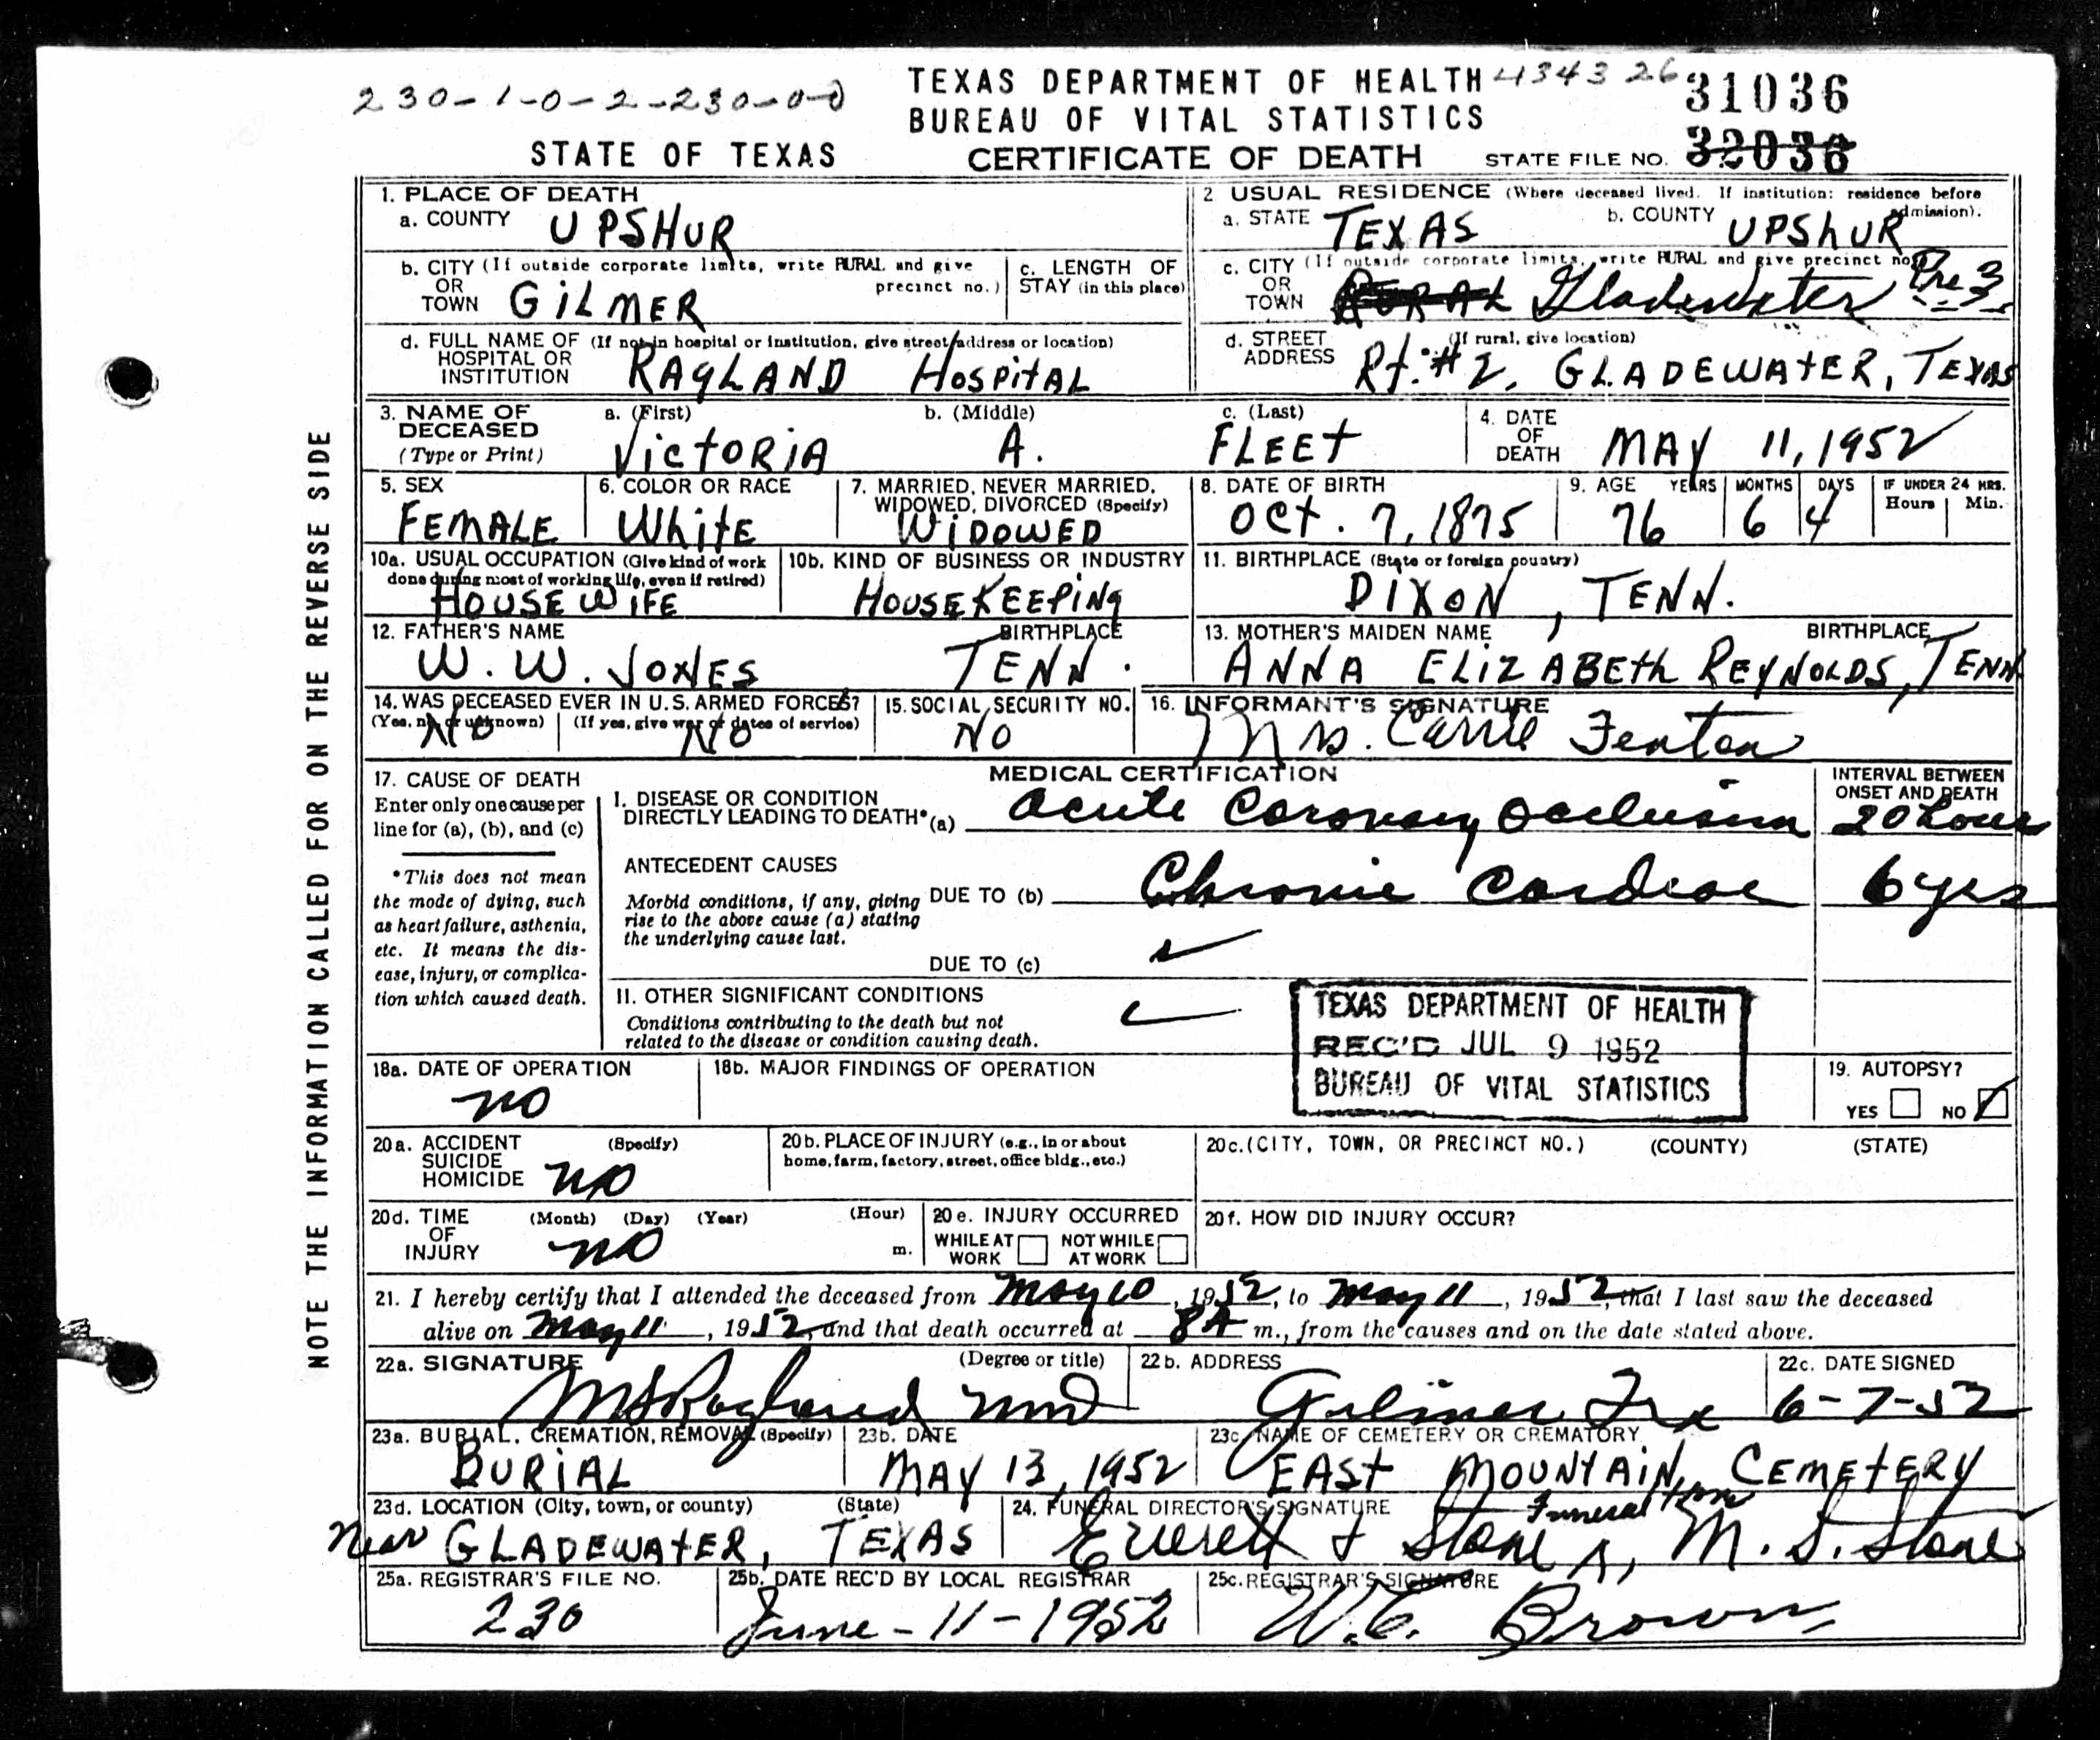 230-1-0-2-230-0-0
TEXAS DEPARTMENT OF HEALTH 434326 31036
BUREAU OF VITAL STATISTICS
STATE OF TEXAS CERTIFICATE OF DEATH STATE FILE NO. 32036
NOTE THE INFORMATION CALLED FOR ON THE REVERSE SIDE
1. PLACE OF DEATH
a. COUNTY UPSHUR
2. USUAL RESIDENCE (Where deceased lived. If institution: residence before admission).
a. STATE TEXAS b. COUNTY UPShUR
b. CITY (If outside corporate limits, write RURAL and give precinct no.)
OR
TOWN GiLMER
c. LENGTH OF STAY (in this place)
c. CITY (If outside corporate limits, write RURAL and give precinct no.)
OR
TOWN RURAL Gladewater Pre 3
d. FULL NAME OF (If not in hospital or institution, give street address or location)
HOSPITAL OR
INSTITUTION RAGLAND HOSPiTAL
d. STREET (If rural, give location)
ADDRESS Rt. #2, GLADEWAtER, TEXAS
3. NAME OF DECEASED (Type or Print)
a. (First) VictORiA b. (Middle) A. c. (Last) FLEEt
4. DATE OF DEATH MAY 11, 1952
5. SEX FEMALE
6. COLOR OR RACE WhitE
7. MARRIED, NEVER MARRIED, WIDOWED, DIVORCED (Specify) WiDOWED
8. DATE OF BIRTH Oct. 7, 1875
9. AGE YEARS 76 MONTHS 6 DAYS 4 IF UNDER 24 HRS. Hours Min.
10a. USUAL OCCUPATION (Give kind of work done during most of working life, even if retired) HOUSEWiFE
10b. KIND OF BUSINESS OR INDUSTRY HOUSEKEEPiNG
11. BIRTHPLACE (State or foreign country) DIXON, TENN.
12. FATHER'S NAME W. W. JONES BIRTHPLACE TENN.
13. MOTHER'S MAIDEN NAME ANNA ELiZABEth REYNOLDS, BIRTHPLACE TENN
14. WAS DECEASED EVER IN U.S. ARMED FORCES?
(Yes, no, or unknown) NO (If yes, give war or dates of service) NO
15. SOCIAL SECURITY NO. NO
16. INFORMANT'S SIGNATURE Mrs. Carrie Fenton
17. CAUSE OF DEATH
Enter only one cause per
line for (a), (b), and (c)
*This does not mean
the mode of dying, such
as heart failure, asthenia,
etc. It means the dis-
ease, injury, or complica-
tion which caused death.
MEDICAL CERTIFICATION
INTERVAL BETWEEN ONSET AND DEATH
I. DISEASE OR CONDITION
DIRECTLY LEADING TO DEATH* (a) acute Coronary Occlusion 20 hours
ANTECEDENT CAUSES
Morbid conditions, if any, giving
rise to the above cause (a) stating
the underlying cause last.
DUE TO (b) Chronic Cardiac 6 yrs
DUE TO (c)
II. OTHER SIGNIFICANT CONDITIONS
Conditions contributing to the death but not
related to the disease or condition causing death.
TEXAS DEPARTMENT OF HEALTH
REC'D JUL 9 1952
BUREAU OF VITAL STATISTICS
18a. DATE OF OPERATION no
18b. MAJOR FINDINGS OF OPERATION
19. AUTOPSY?
YES NO
20a. ACCIDENT (Specify)
SUICIDE
HOMICIDE no
20b. PLACE OF INJURY (e.g., in or about home, farm, factory, street, office bldg., etc.)
20c. (CITY, TOWN, OR PRECINCT NO.) (COUNTY) (STATE)
20d. TIME OF INJURY (Month) (Day) (Year) (Hour) m. no
20e. INJURY OCCURRED
WHILE AT WORK NOT WHILE AT WORK
20f. HOW DID INJURY OCCUR?
21. I hereby certify that I attended the deceased from May 10, 1952, to May 11, 1952, that I last saw the deceased
alive on May 11, 1952, and that death occurred at 8A m., from the causes and on the date stated above.
22a. SIGNATURE (Degree or title) MS Ragland MD
22b. ADDRESS Gilmer Tex
22c. DATE SIGNED 6-7-52
23a. BURIAL, CREMATION, REMOVAL (Specify) BURiAL
23b. DATE MAY 13, 1952
23c. NAME OF CEMETERY OR CREMATORY EASt MOUNtAiN CEMEtERY
23d. LOCATION (City, town, or county) (State) Near GLADEWAtER, TEXAS
24. FUNERAL DIRECTOR'S SIGNATURE Everett & Stone Funeral Hom M. S. Stone
25a. REGISTRAR'S FILE NO. 230
25b. DATE REC'D BY LOCAL REGISTRAR June-11-1952
25c. REGISTRAR'S SIGNATURE W.E. Brown